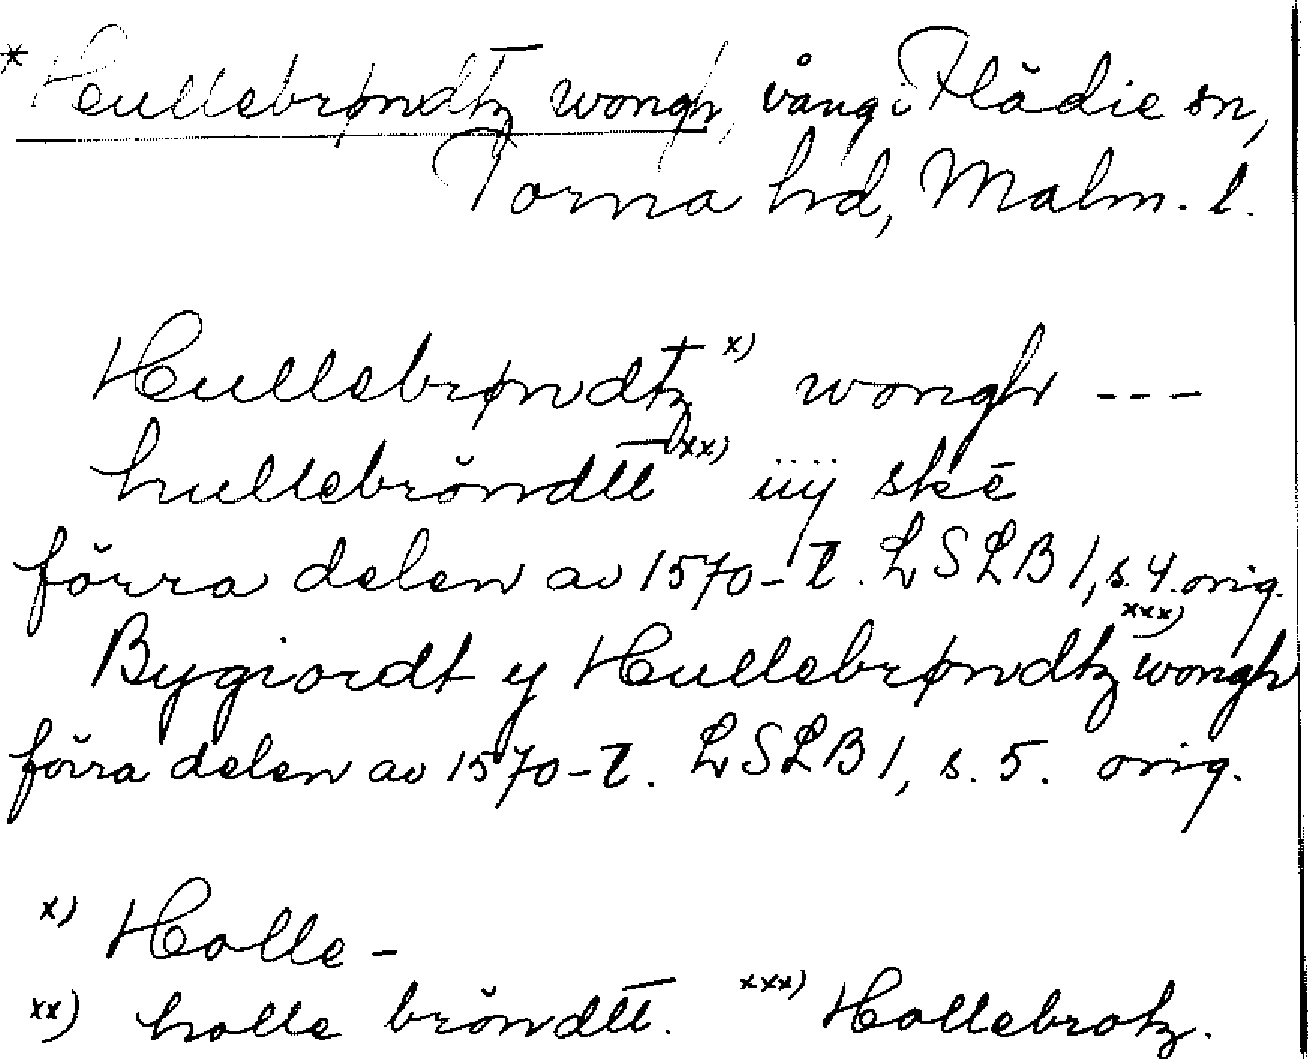 * Hullebrøndtz wongh, vång i Flädie sn,
Torna hd, Malm. l.
Hullebrøndtz x) wongh ---
hullebröndtt xx) iiij skē
förra delen av 1570-t. LSLB 1, s. 4. orig.
Bygiordt y Hullebrøndtz xxx) wongh
förra delen av 1570-t. LSLB 1, s. 5. orig.
x) Holle -
xx) holle bröndtt. xxx) Hollebrotz.